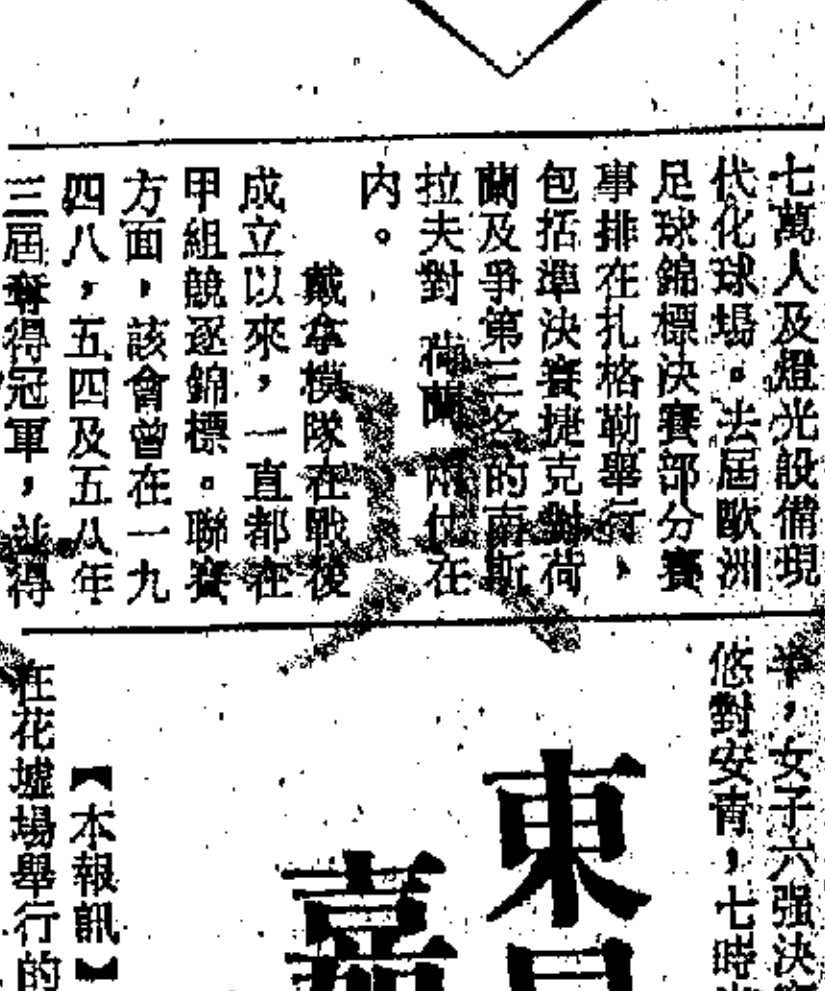 七萬人及燈光設備現
代化球場。去屆歐洲
足球錦標決賽部分賽
事排在扎格勒舉行，
包括準決賽捷克對荷
蘭及爭第三名的南斯
拉夫對荷蘭兩仗在
內。
戴拿模隊在戰後
成立以來，一直都在
甲組競逐錦標。聯賽
方面，該會曾在一九
四八，五四及五八年
三屆奪得冠軍，並得
半，女子六强決賽
悠對安青，七時
東
嘉
【本報訊】
在花墟場舉行的